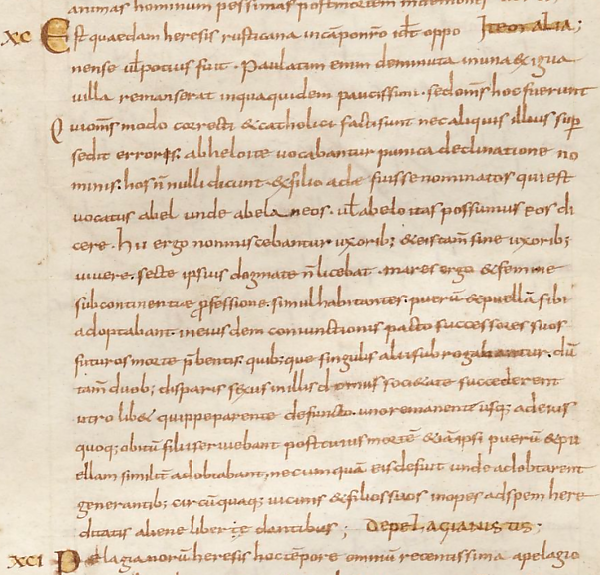 animas hominum pessimas post mortem in demones
XC Est quaedam heresis rusticana in campo nr̄o idē oppo
nense ul̄ potius fuit · Paulatim enim deminuta in una & igua
uilla remanserat in qua quidem paucissimi · sed om̄s hoc fuerunt
Qui om̄s modo correcti & catholici facti sunt nec aliquis illius sup̄
sedit erroris; abheloite uocabantur punica declinatione no
minis; hos n̄ nulli dicunt & filio adae fuisse nominatos qui est
uocatus abel unde abelaneos · ul̄ abeloitas possumus eos di
cere · hii ergo non miscebantur uxorib; & eis tam̄ sine uxorib;
uiuere · secte ipsius dogmate n̄ licebat · mares ergo & femine
sub continentiae p̄fessione · simul habitantes · puerū & puellā sibi
adoptabant · in eiusdem coniunctionis pacto successores suos
futuros morte p̄bentis quib;que singulis alii subrogabantur · dū
tam̄ duob; disparis sexus in illis domus societate succederent
utro lib& quippe parente defuncto · uno remanente usq; ad eius
quoq; obitū filii seruiebant post cuius mortē & iā ipsi puerū & pu
ellam similit̄ adobtabant; nec umquā eis defuit unde adobtarent
generantib; circūquaq; uicinis & filios suos inopes ad spem here
ditatis aliene libertę dantibus ; De pelagianistis;
XCI Pelagianorū heresis hoc tēpore omniū recentissima a pelagio